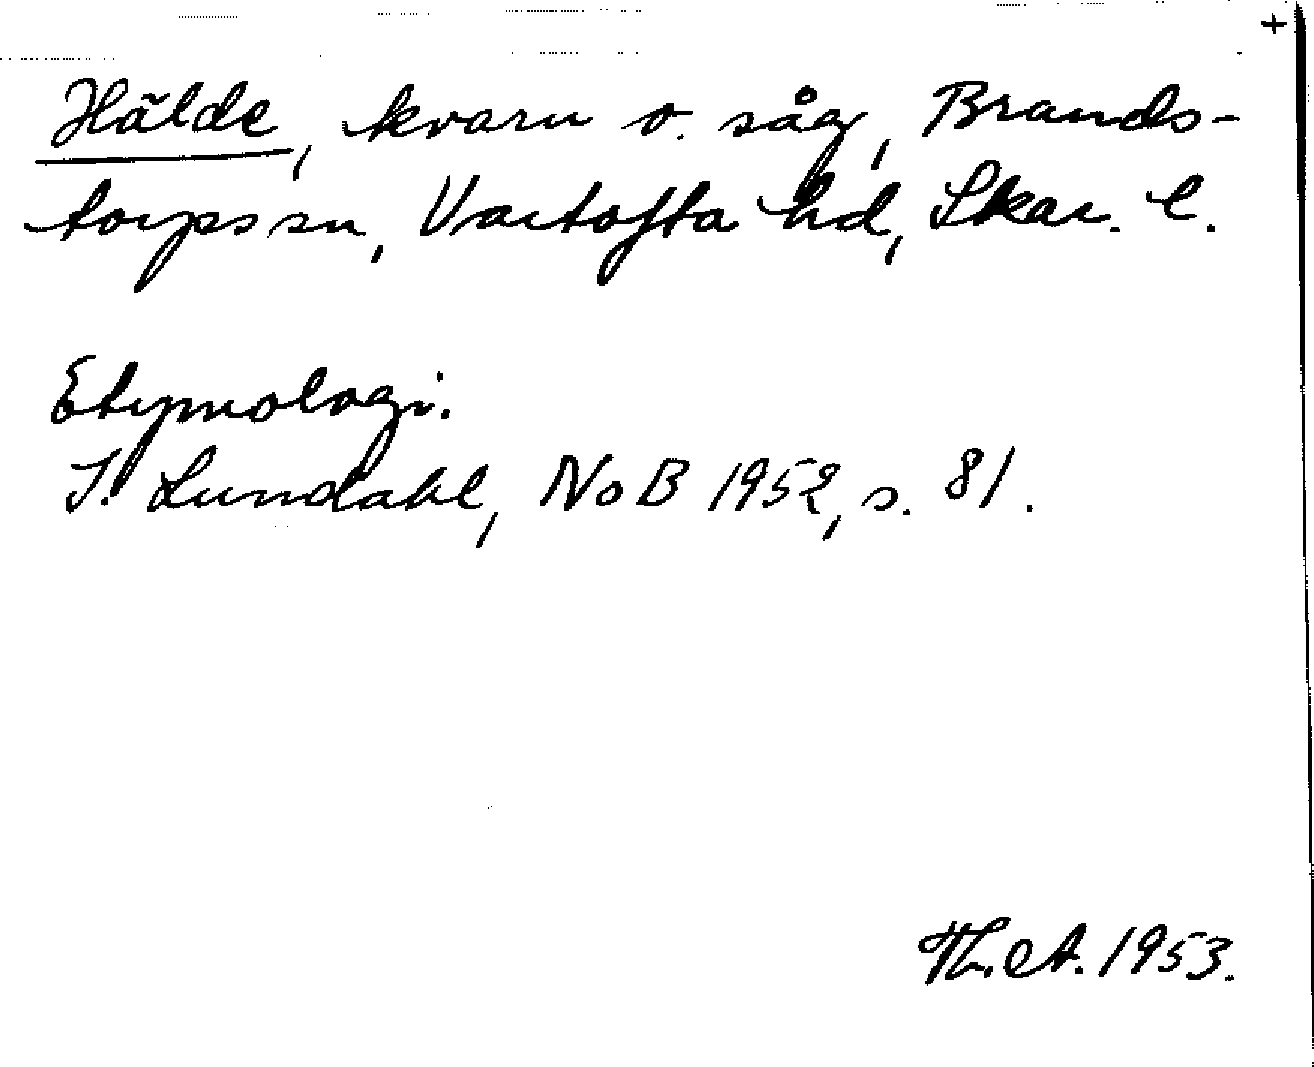 +
Hälde, kvarn o. såg, Brands-
torps sn, Vartofta hd, Skar. l.
Etymologi.
I. Lundahl, NoB 1952, s. 81.
Th. A. 1953.